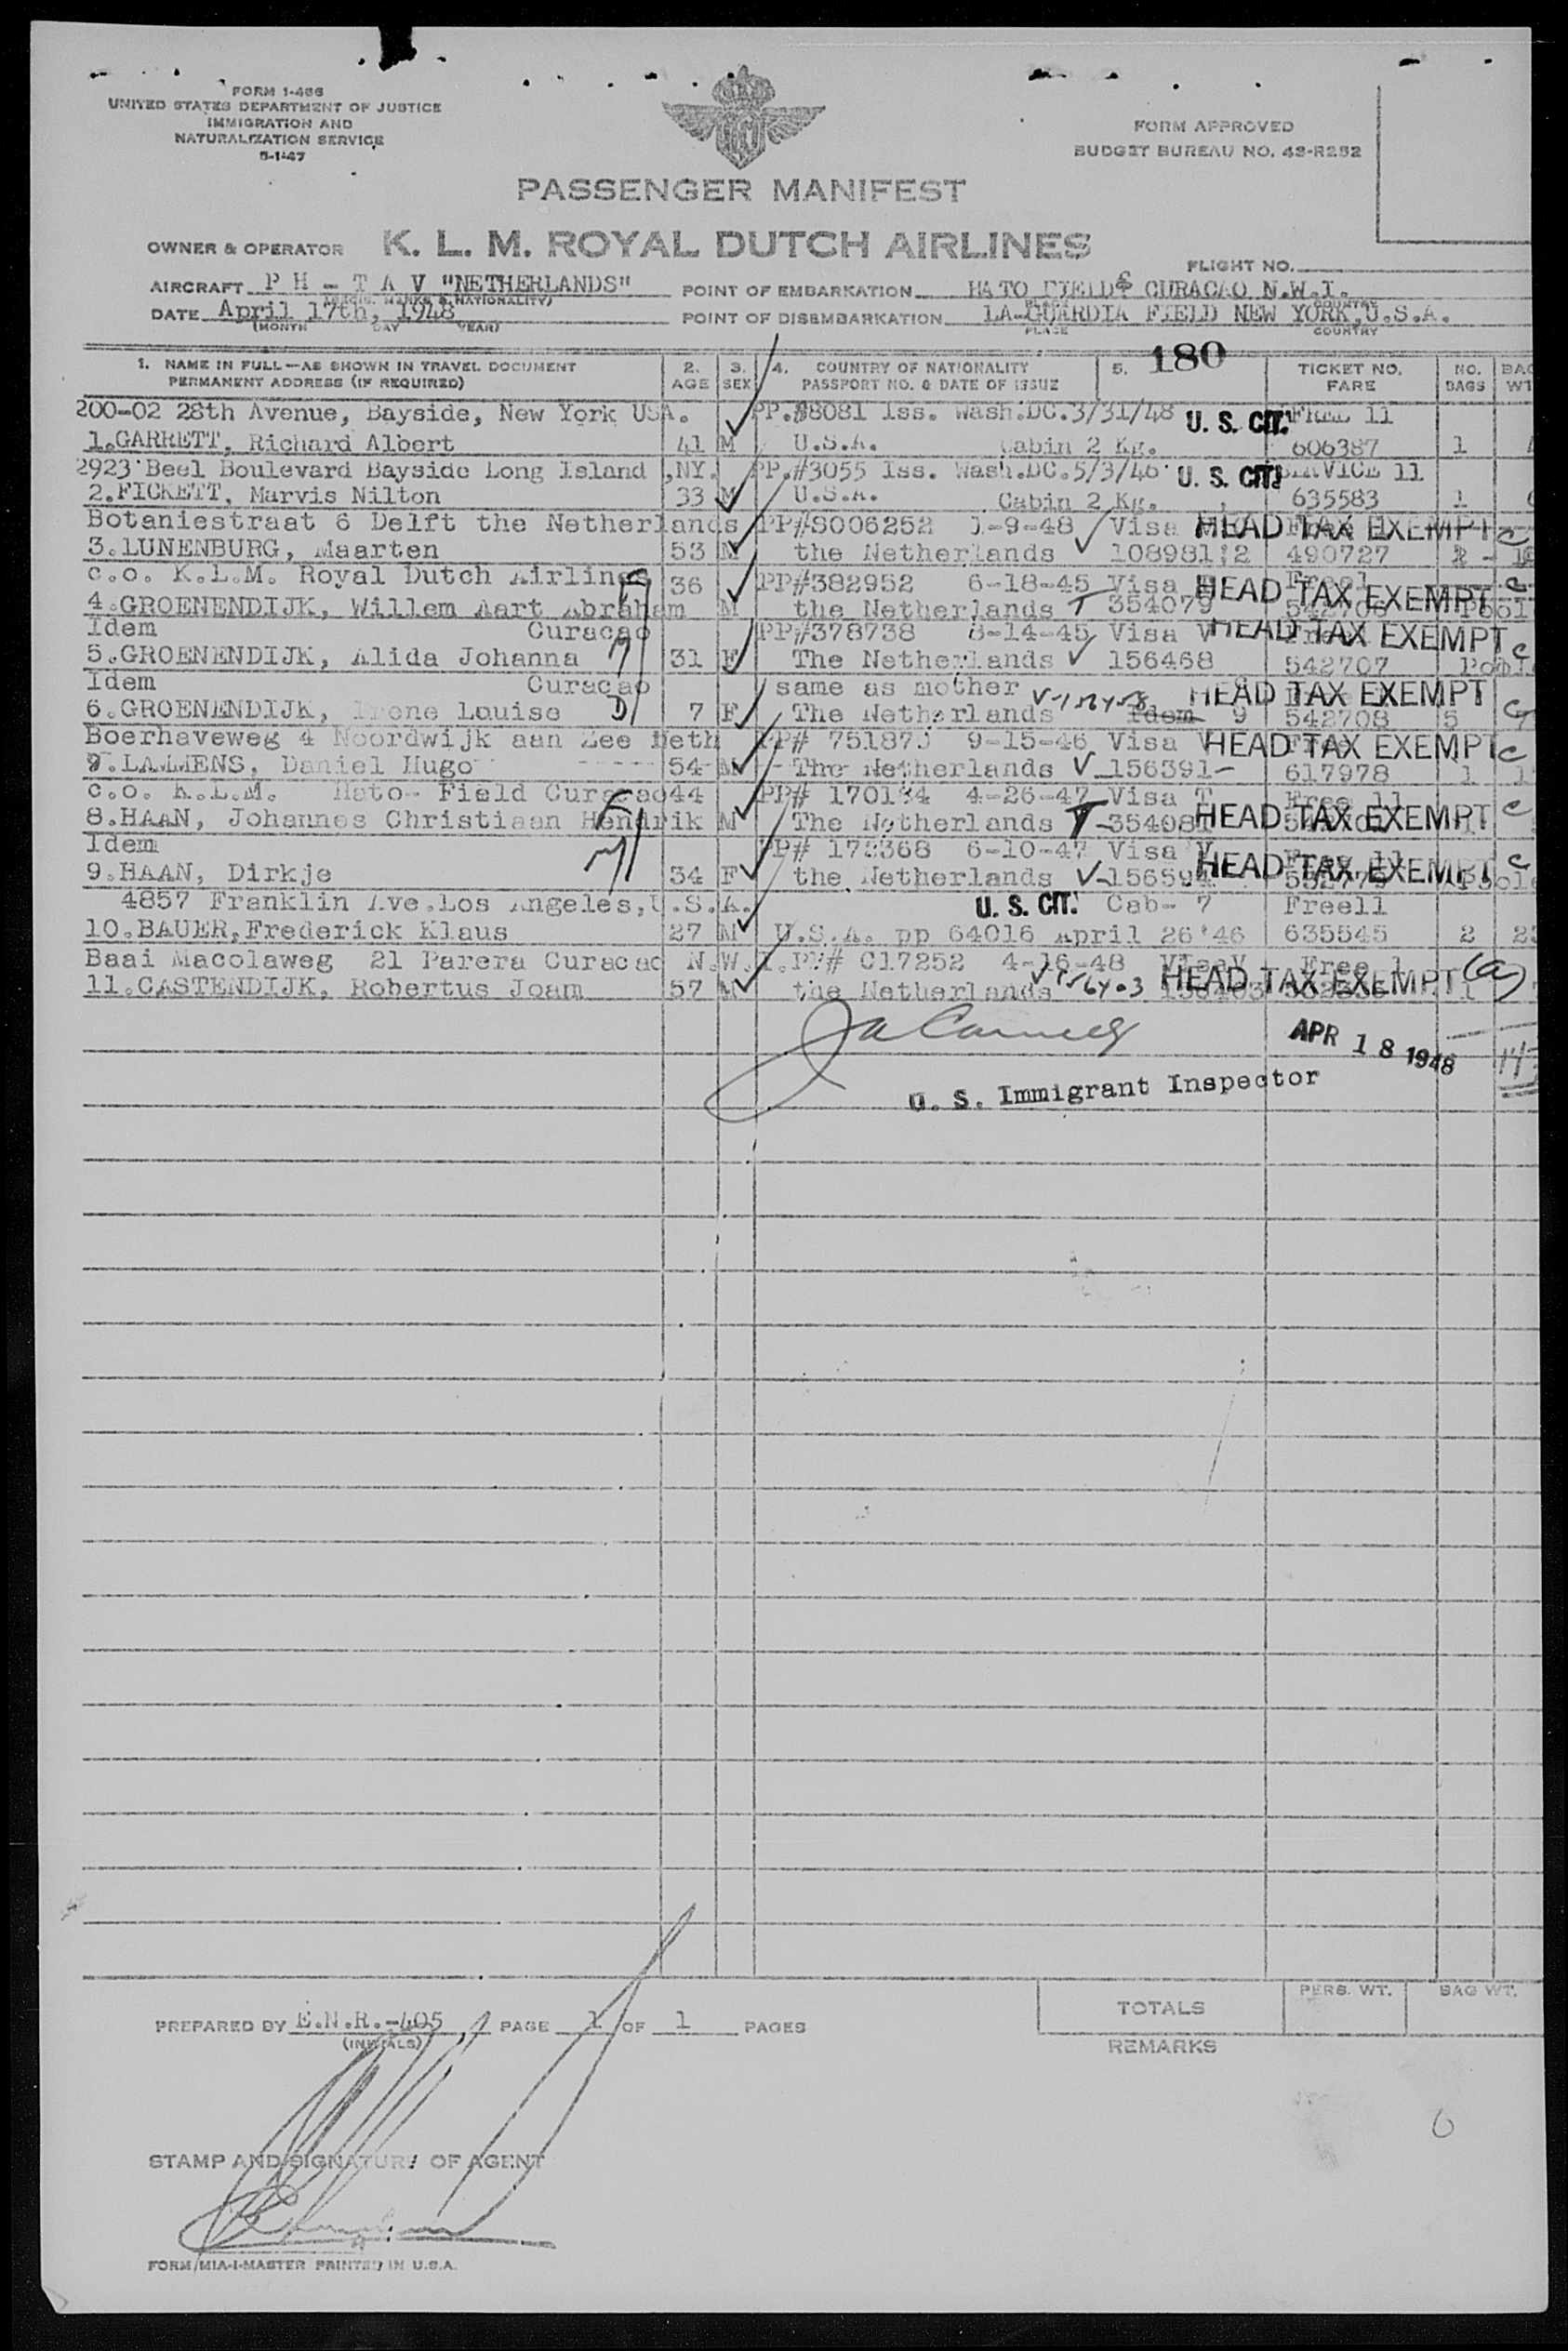 FORM 1-466
UNITED STATES DEPARTMENT OF JUSTICE
IMMIGRATION AND
NATURALIZATION SERVICE
5-1-47
FORM APPROVED
BUDGET BUREAU NO. 43-R252
PASSENGER MANIFEST
OWNER & OPERATOR K. L. M. ROYAL DUTCH AIRLINES
FLIGHT NO.
AIRCRAFT P H - T A V "NETHERLANDS" POINT OF EMBARKATION HATO FIELD CURACAO N.W.I.
DATE April 17th, 1948 POINT OF DISEMBARKATION LA-GUARDIA FIELD NEW YORK, U.S.A.
(MONTH DAY YEAR) PLACE COUNTRY
180
1. NAME IN FULL—AS SHOWN IN TRAVEL DOCUMENT 2. 3. 4. COUNTRY OF NATIONALITY 5. TICKET NO. NO. BAG
PERMANENT ADDRESS (IF REQUIRED) AGE SEX PASSPORT NO. & DATE OF ISSUE FARE BAGS WT
200-02 28th Avenue, Bayside, New York USA. PP. 8081 Iss. Wash.DC.3/31/48 U. S. CIT. FREE 11
1.GARRETT, Richard Albert 41 M U.S.A. Cabin 2 Kg. 606387 1
2923 Beel Boulevard Bayside Long Island ,NY. PP.#3055 Iss. Wash.DC.5/3/46 U. S. CIT. SERVICE 11
2.FICKETT, Marvis Nilton 33 M U.S.A. Cabin 2 Kg. 635583 1
Botaniestraat 6 Delft the Netherlands PP#S006252 -9-48 Visa HEAD TAX EXEMPT c
3.LUNENBURG, Maarten 53 M the Netherlands 108981 2 490727
c.o. K.L.M. Royal Dutch Airlines F 36 PP#382952 6-18-45 Visa HEAD TAX EXEMPT c
4.GROENENDIJK, Willem Aart Abraham M the Netherlands T 354079 542706 Pool
Idem Curacao PP#378738 8-14-45 Visa V HEAD TAX EXEMPT c
5.GROENENDIJK, Alida Johanna M 31 F The Netherlands 156458 542707
Idem Curacao same as mother V-156458 HEAD TAX EXEMPT
6.GROENENDIJK, Irene Louise D 7 F The Netherlands Idem 9 542708 5
Boerhaveweg 4 Noordwijk aan Zee Neth PP# 75187 9-15-46 Visa V HEAD TAX EXEMPT c
7.LAMMENS, Daniel Hugo 54 M The Netherlands V 156391 617978 1
c.o. K.L.M. Hato- Field Curacao 44 PP# 170134 4-26-47 Visa T Free 11 HEAD TAX EXEMPT c
8.HAAN, Johannes Christiaan Hendrik M The Netherlands T 354081
Idem PP# 172368 6-10-47 Visa V HEAD TAX EXEMPT c
9.HAAN, Dirkje 34 F the Netherlands V 156594
4857 Franklin Ave.Los Angeles,U.S.A. U. S. CIT. Cab- 7 Free11
10.BAUER,Frederick Klaus 27 M U.S.A. pp 64016 April 26'46 635545 2
Baai Macolaweg 21 Parera Curacao N.W.I.PP# C17252 4-16-48 VisaV Free 1 HEAD TAX EXEMPT (a)
11.CASTENDIJK, Robertus Joam 57 M the Netherlands V 156403 156403 1
APR 18 1948
U. S. Immigrant Inspector
TOTALS PERS. WT. BAG WT.
PREPARED BY E.N.R.-405 PAGE 1 OF 1 PAGES
(INITIALS)
REMARKS
STAMP AND SIGNATURE OF AGENT
FORM MIA-I-MASTER PRINTED IN U.S.A.